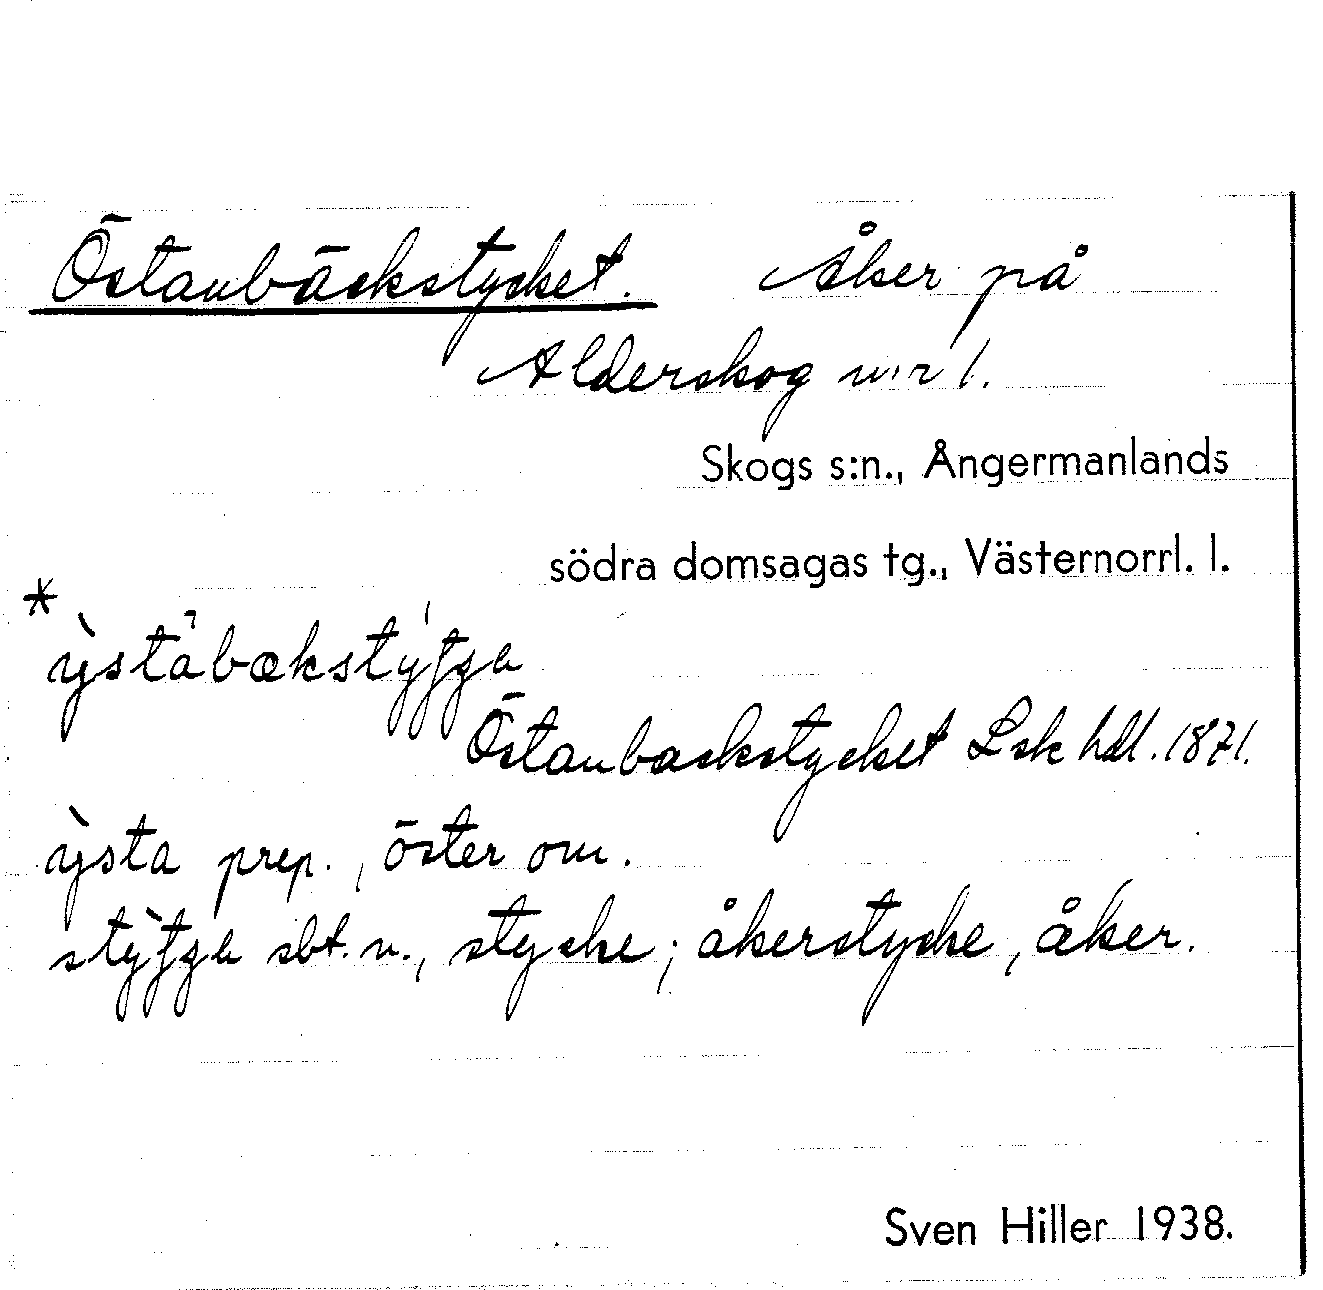 Östanbäckstycket. Åker på
Alderskog n:r 1.
Skogs s:n., Ångermanlands
södra domsagas tg., Västernorrl. l.
*
Östanbackstycket Lsk hdl. 1871.
prep., öster om.
sbt. n., stycke; åkerstycke, åker.
Sven Hiller 1938.